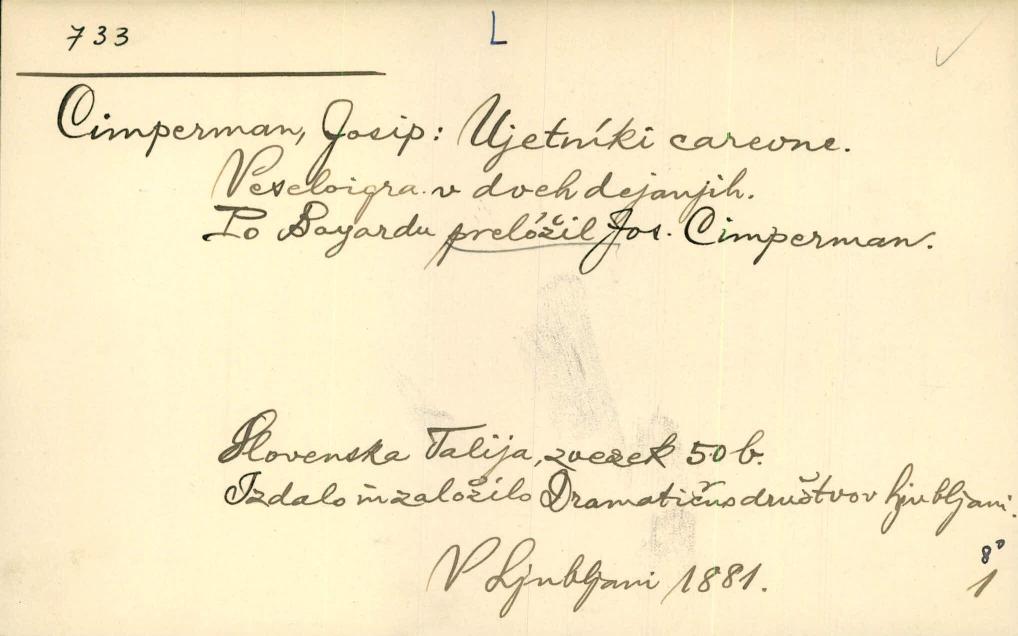 733
L
Cimperman, Josip: Ujetniki carevne.
Veseloigra v dveh dejanjih.
Po Bayardu preložil Jos. Cimperman.
Slovenska Talija, zvezek 50 b.
Izdalo in založilo Dramatično društvo v Ljubljani.
V Ljubljani 1881.
8°
1